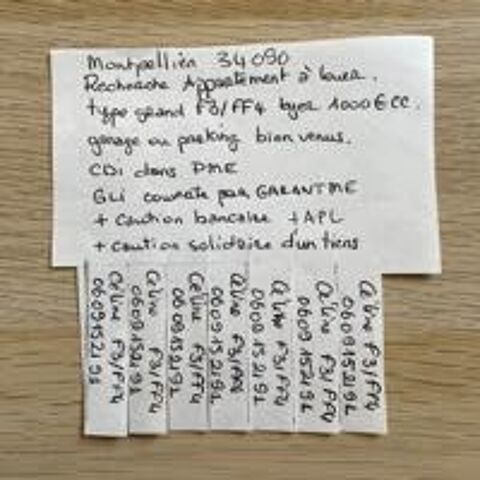 Montpellier 34090
Recherche Appartement à louer.
type grand F3/FF4 loyer 1000€CC.
garage ou parking bienvenus.
CDI dans PME
GLI courate par GARANTME
+ Caution bancaire + APL
+ caution solidaire d'un tiers
Céline F3/FF4
0609152192
Céline F3/FF4
0609152192
Céline F3/FF4
0609152192
Céline F3/FF4
0609152192
Céline F3/FF4
0609152192
Céline F3/FF4
0609152192
Céline F3/FF4
0609152192